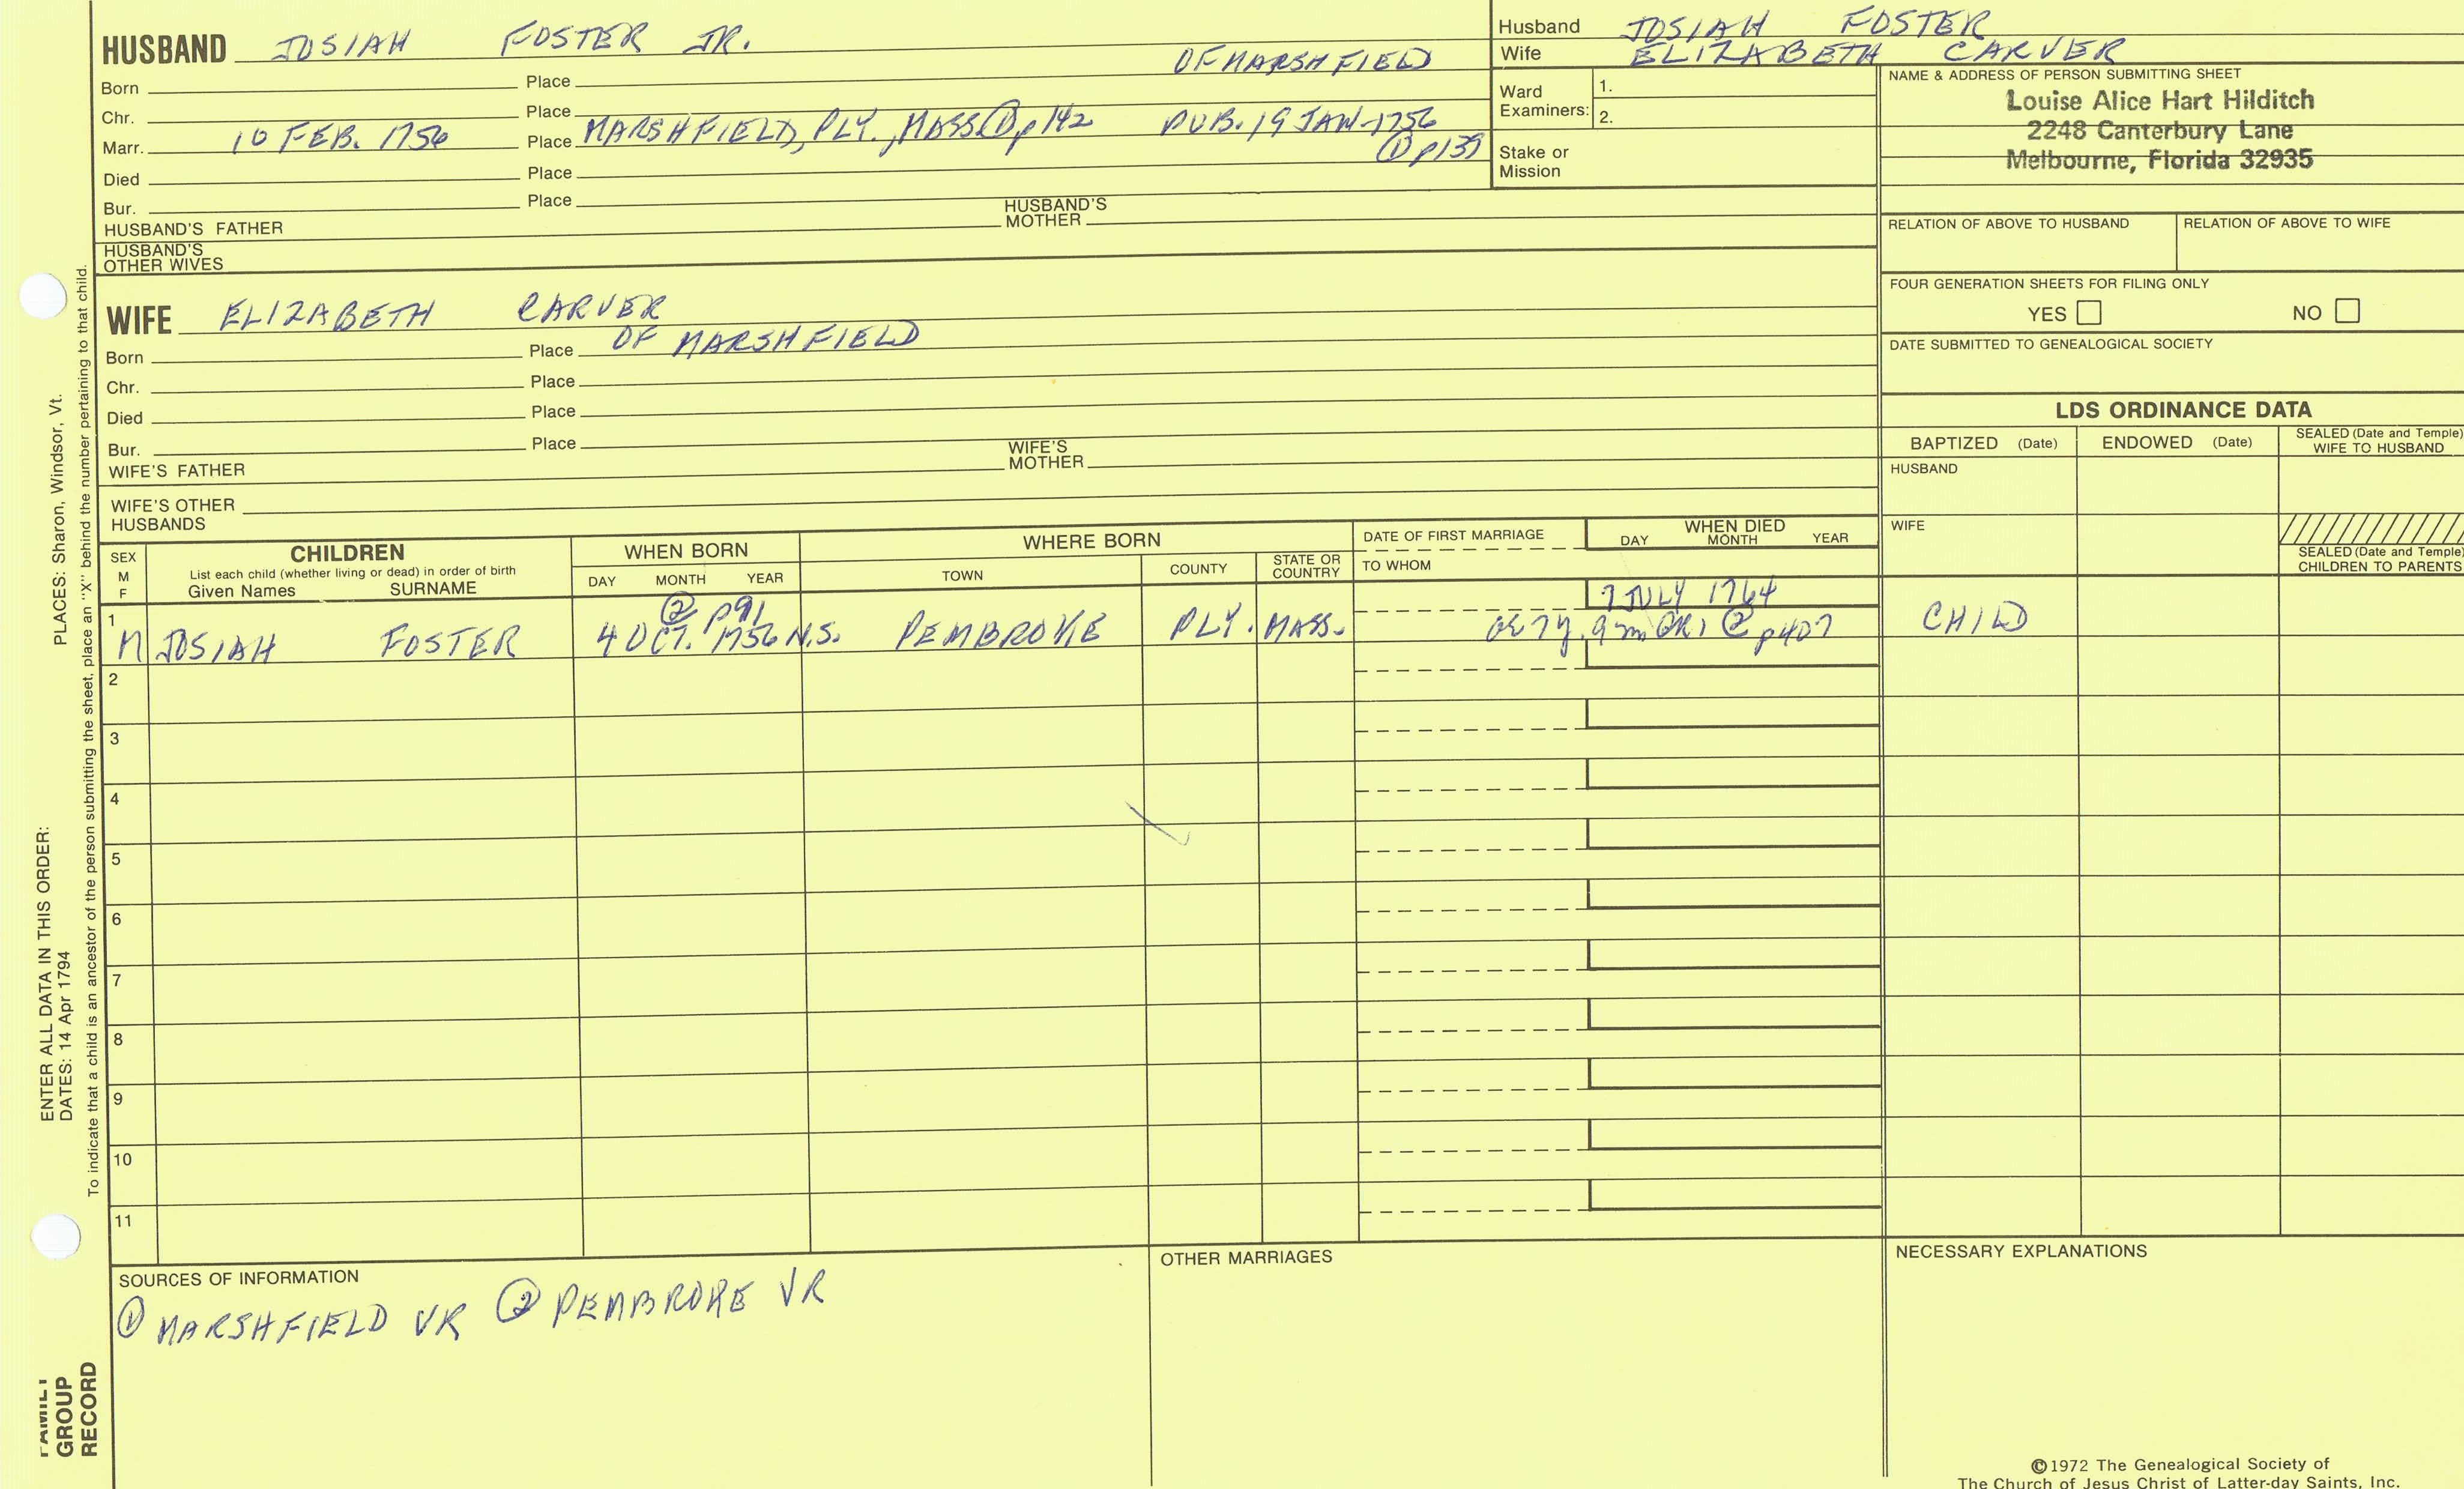 HUSBAND JOSIAH FOSTER JR.
OF MARSHFIELD
Born Place
Chr. Place
Marr. 10 FEB. 1756 Place MARSHFIELD, PLY., MASS ① p 142 PUB. 19 JAN-1756
① p139
Died Place
Bur. Place
HUSBAND'S FATHER HUSBAND'S MOTHER
HUSBAND'S
OTHER WIVES
Husband JOSIAH FOSTER
Wife ELIZABETH CARVER
Ward Examiners: 1.
2.
Stake or Mission
NAME & ADDRESS OF PERSON SUBMITTING SHEET
Louise Alice Hart Hilditch
2248 Canterbury Lane
Melbourne, Florida 32935
RELATION OF ABOVE TO HUSBAND RELATION OF ABOVE TO WIFE
FOUR GENERATION SHEETS FOR FILING ONLY
YES NO
DATE SUBMITTED TO GENEALOGICAL SOCIETY
WIFE ELIZABETH CARVER
Born Place OF MARSHFIELD
Chr. Place
Died Place
Bur. Place
WIFE'S FATHER WIFE'S MOTHER
WIFE'S OTHER
HUSBANDS
LDS ORDINANCE DATA
BAPTIZED (Date) ENDOWED (Date) SEALED (Date and Temple) WIFE TO HUSBAND
HUSBAND
WIFE
SEALED (Date and Temple)
CHILDREN TO PARENTS
SEX M F
CHILDREN
List each child (whether living or dead) in order of birth
Given Names SURNAME
WHEN BORN
DAY MONTH YEAR
WHERE BORN
TOWN COUNTY STATE OR COUNTRY
DATE OF FIRST MARRIAGE
TO WHOM
WHEN DIED
DAY MONTH YEAR
② p91 7 JULY 1764
1 M JOSIAH FOSTER 4 OCT. 1756 N.S. PEMBROKE PLY. MASS. ae 7y. 9m GR1 ② p407 CHILD
2
3
4
5
6
7
8
9
10
11
SOURCES OF INFORMATION
① MARSHFIELD VR ② PEMBROKE VR
OTHER MARRIAGES
NECESSARY EXPLANATIONS
©1972 The Genealogical Society of
The Church of Jesus Christ of Latter-day Saints, Inc.
FAMILY
GROUP
RECORD
ENTER ALL DATA IN THIS ORDER:
DATES: 14 Apr 1794
PLACES: Sharon, Windsor, Vt.
To indicate that a child is an ancestor of the person submitting the sheet, place an "X" behind the number pertaining to that child.